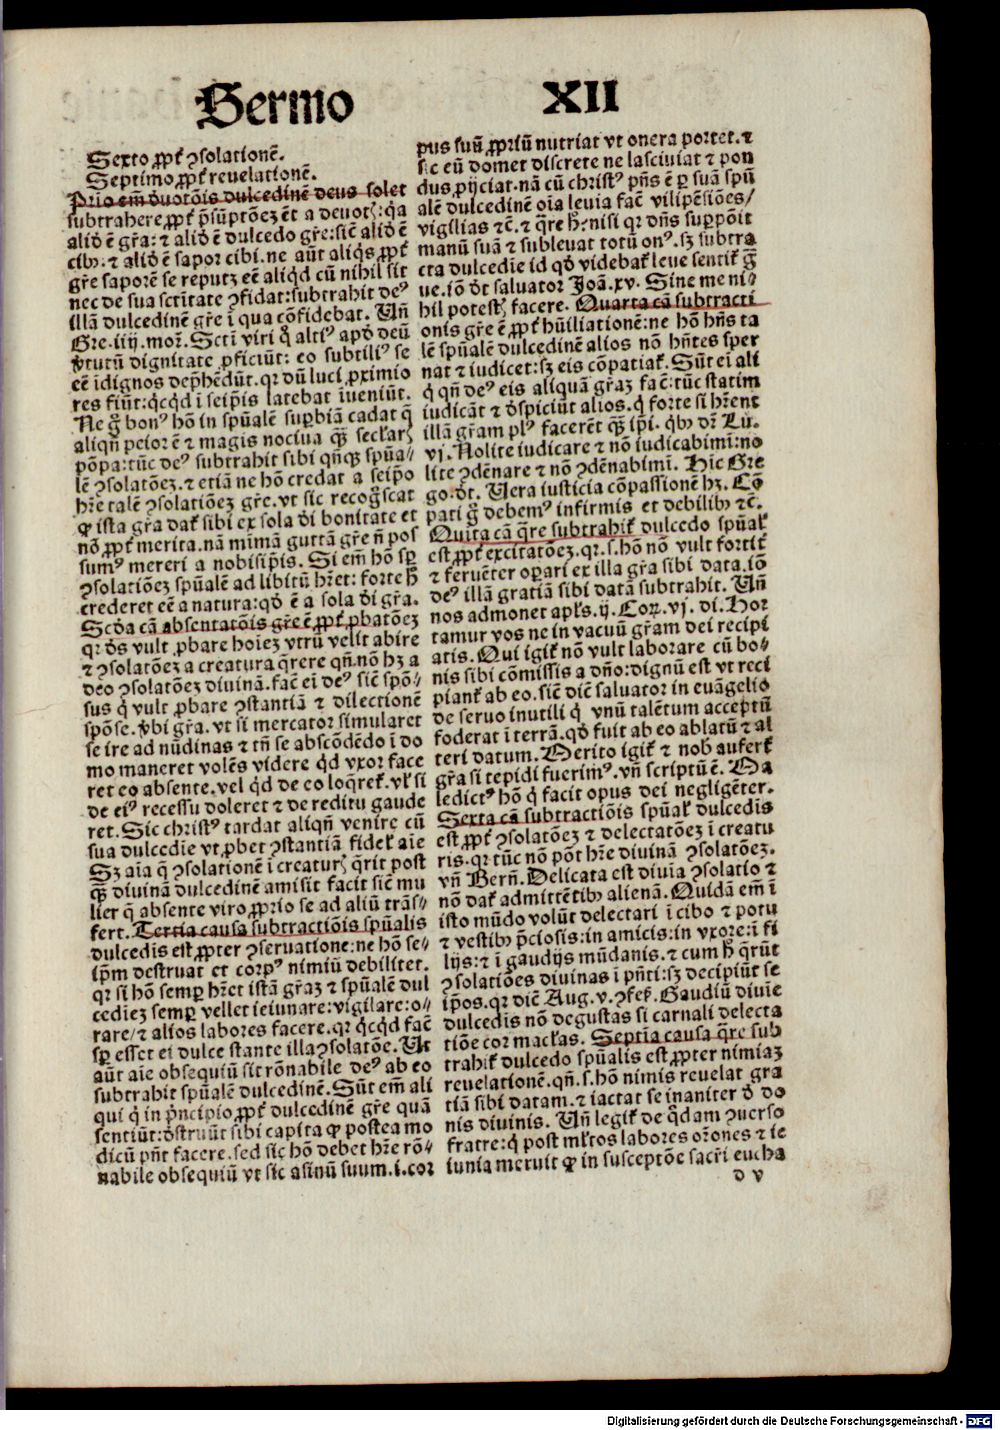 Sermo XII
Sexto ꝓpt̄ ↄsolationē.
Septimo ꝓpt̄ reuelationē.
Prīo em̄ dꝰuotōis dulcedinē deus solet
subtrahere ꝓpt̄ p̄sūptōeꝫ ēt a deuotꝭ: q̄a
aliď ē gr̄a: ⁊ aliď ē dulcedo gr̄e: sic̄ aliď ē
cibꝰ. ⁊ aliď ē sapor cibi. ne aūt aliqͥs ꝓpt̄
gr̄e saporē se reputꝫ eē aliqͥd cū nihil sit
nec de sua sc̄titate ↄfidat: subtrahit deꝰ
illā dulcedinē gr̄e ī qua cōfidebat. Vn̄
Gre. iiij. mor̄. Scti viri qͦ altiꝰ apď deū
ꝟtutū dignitate ꝓficiūt: eo subtiliꝰ se
eē īdignos dep̄hēdūt. qꝛ dū luci ꝓximio
res fiūt: qͥcqͥd ī seip̄is latebat īueniūt.
Ne gͦ bonꝰ hō in spūalē suꝑbiā cadat q̄
aliqn̄ peior ē ⁊ magis nociua qͣꝫ sec̄larꝭ
pōpa: tūc deꝰ subtrahit sibi qn̄qꝫ spūa-
lē ↄsolatōeꝫ. ⁊ etiā ne hō credat a seip̄o
hr̄e talē ↄsolatiōeꝫ gr̄e. vt sic recogͦscat
ꝙ ista gr̄a dat̄ sibi ex sola di bonitate et
nō ꝓpt̄ merita. nā mīmā guttā gr̄e n̄ pos
sumꝰ mereri a nobisip̄is. Si em̄ hō sꝑ
ↄsolatiōeꝫ spūalē ad libitū hr̄et: forte h̄
crederet eē a natura: qď ē a sola di gr̄a.
Scďa cā absentatōis gr̄e ē ꝓpt̄ ꝓbatōeꝫ
qꝛ dꝰs vult ꝓbare hoieꝫ vtrū velit abire
⁊ ↄsolatōeꝫ a creatura qͣrere qn̄ nō hꝫ a
deo ↄsolatōeꝫ diuinā. fac̄ eī deꝰ sic̄ spō-
sus qͥ vult ꝓbare ↄstantiā ⁊ dilectionē
spōse. ꝟbi gr̄a. vt si mercator simularet
se ire ad nūdinas ⁊ tn̄ se abscōdēdo ī do
mo maneret volēs videre qͥd vxor face
ret eo absente. vel qͥd de eo loqͣret̄. vl̄ si
de eiꝰ recessu doleret ⁊ de reditu gaude
ret. Sic christꝰ tardat aliqn̄ venire cū
sua dulcedīe vt ꝓbet ↄstantiā fidel̄ aīe
Sꝫ aīa q̄ ↄsolationē ī creaturꝭ qͣrit post
qͣꝫ diuinā dulcedinē amisit facit sic̄ mu
lier q̄ absente viro ꝓprio se ad aliū trās-
fert. Tertia causa subtractiōis spūalis
dulcedīs est ꝓpter ↄseruatione: ne hō se-
ip̄m destruat et corpꝰ nimiū debilitet.
qꝛ si hō semꝑ hr̄et istā gr̄aꝫ ⁊ spūalē dul
cedieꝫ semꝑ vellet ieiunare: vigilare: o-
rare/ ⁊ alios labores facere. qꝛ qͥcqͥd fac̄
sꝑ esset ei dulce stante illa ↄsolatōe. Ut
aūt aīe obsequiū sit rōnabile deꝰ ab eo
subtrahit spūalē dulcedinē. Sūt em̄ ali
qui qͥ in pͥncipio ꝓpt̄ dulcedinē gr̄e quā
sentiūt: dꝰstruūt sibi capita ꝙ postea mo
dicū pn̄t facere. sed sic hō debet hr̄e rō-
nabile obsequiū vt sic asinū suum. i. cor
pus suū ꝓpriū nutriat vt onera portet. ⁊
sic eū domet discrete ne lasciuiat ⁊ pon
dus ꝓijciat. nā cū christꝰ pn̄s ē ꝑ suā spū
alē dulcedinē oīa leuia fac̄ vilipēsiōes/
vigilias ⁊c̄. ⁊ qͣre hꝰ: nisi qꝛ dn̄s suppōit
manū suā ⁊ subleuat totū onꝰ. sꝫ subtra
cta dulcedīe id qď videbat̄ leue sentit̄ gͣ
ue. iō dt̄ saluator Joā. xv. Sine me ni-
hil potestꝭ facere. Quarta cā subtracti
onis gr̄e ē ꝓpt̄ hūiliationē: ne hō hn̄s ta
lē spūalē dulcedinē alios nō hn̄tes sper
nat ⁊ iudicet: sꝫ eis cōpatiat̄. Sūt eī ali
qͥ qn̄ deꝰ eis aliquā gr̄aꝫ fac̄: tūc statim
iudicāt ⁊ dꝰspiciūt alios. qͥ forte si hr̄ent
illā gr̄am plꝰ facerēt qͣꝫ ip̄i. qͥbꝰ dr̄ Lu.
vj. Nolite iudicare ⁊ nō iudicabimī: no
lite ↄdēnare ⁊ nō ↄdēnabimī. Hic Gre
go. dt̄. Vera iusticia cōpassionē hꝫ. Cō
pati gͦ debemꝰ infirmis et debilibꝰ ⁊c̄.
Quīta cā qͣre subtrahit̄ dulcedo spūal̄
est ꝓpt̄ excitatōeꝫ. qꝛ. s. hō nō vult fortit̄
⁊ feruēter oꝑari ex illa gr̄a sibi data. iō
deꝰ illā gratiā sibi datā subtrahit. Vn̄
nos admonet apl̄s. ij. Coꝝ. vj. di. Hor
tamur vos ne in vacuū gr̄am dei recipi
atis. Qui igit̄ nō vult laborare cū bo-
nis sibi cōmissis a dn̄o: dignū est vt reci
piant̄ ab eo. sic̄ dic̄ saluator in euāgelio
de seruo inutili qͥ vnū talētum acceptū
foderat ī terrā. qď fuit ab eo ablatū ⁊ al
teri datum. Merito igit̄ ⁊ nobꝭ aufert̄
gr̄a si tepidi fuerimꝰ. vn̄ scriptū ē. Ma
ledictꝰ hō qͥ facit opus dei negligēter.
Sexta cā subtractiōis spūal̄ dulcedīs
est ꝓpt̄ ↄsolatōeꝫ ⁊ delectatōeꝫ ī creatu
ris. qꝛ tūc nō pōt hr̄e diuinā ↄsolatōeꝫ.
vn̄ Bern̄. Delicata est diuīa ↄsolatio ⁊
nō dat̄ admittētibꝰ alienā. Quidā em̄ ī
isto mūdo volūt delectari ī cibo ⁊ potu
⁊ vestibꝰ p̄ciosis: in amicis: in vxore: ī fi
lijs: ⁊ ī gaudijs mūdanis. ⁊ cum h̄ qͣrūt
ↄsolatiōes diuinas ī pn̄ti: sꝫ decipiūt se
ip̄os. qꝛ dic̄ Aug. v. ↄfes̄. Gaudiū diuīe
dulcedīs nō degustas si carnali delecta
tiōe cor macl̄as. Septīa causa qͣre sub
trahit̄ dulcedo spūalis est ꝓpter nimiaꝫ
reuelationē. qn̄. s. hō nimis reuelat gra
tiā sibi datam. ⁊ iactat se inaniter dꝰ do
nis diuinis. Vn̄ legit̄ de qͦdam ↄuerso
fratre: qͥ post ml̄tos labores or̄ones ⁊ ie
iunia meruit ꝙ in susceptōe sacr̄i eucha
d v
Digitalisierung gefördert durch die Deutsche Forschungsgemeinschaft - DFG